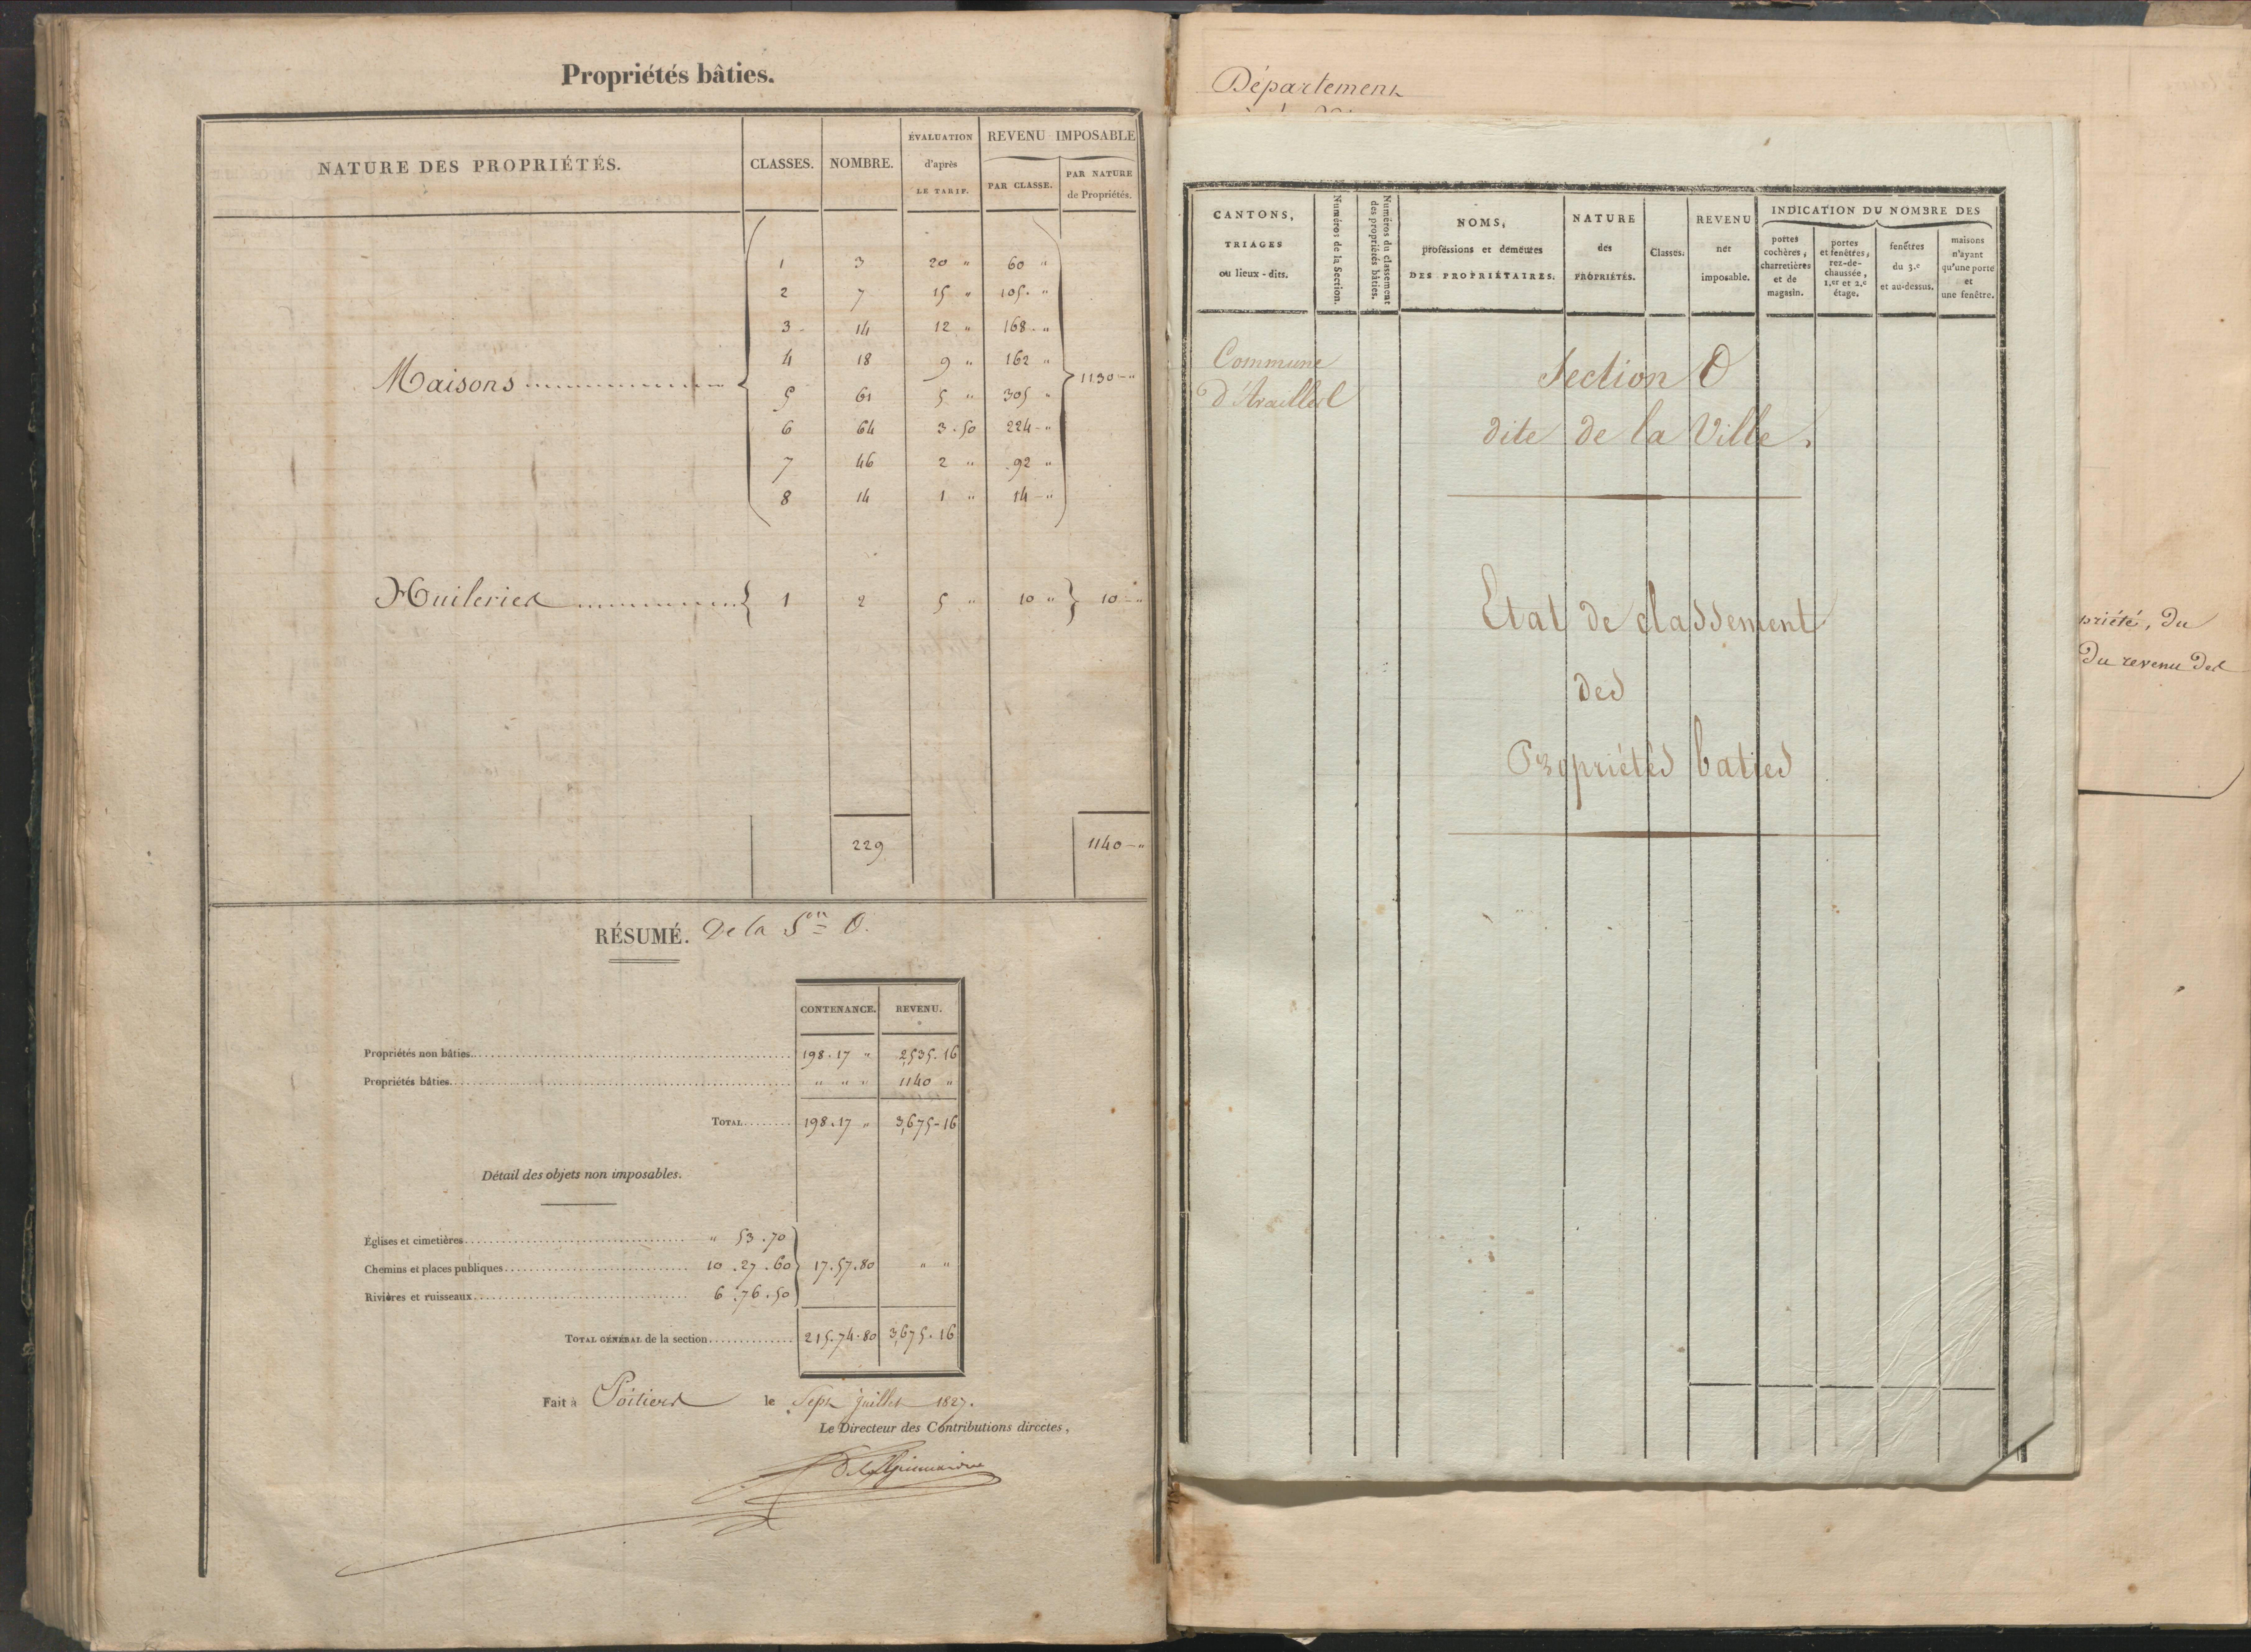 Propriétés bâties.
NATURE DES PROPRIÉTÉS. CLASSES. NOMBRE. ÉVALUATION d'après LE TARIF. REVENU IMPOSABLE PAR CLASSE. PAR NATURE de Propriétés.
1 3 20 " 60 "
2 7 15 " 105. "
3 14 12 " 168 - "
4 18 9 " 162 "
Maisons 1130 - "
5 61 5 " 305 "
6 64 3.50 224 - "
7 46 2 " 92 "
8 14 1 " 14 - "
Huileries 1 2 5 " 10 " 10 - "
229 1140 - "
RÉSUMÉ. De la S.on O.
CONTENANCE. REVENU.
Propriétés non bâties 198.17 " 2,535.16
Propriétés bâties " " " 1140 "
TOTAL 198.17 " 3,675-16
Détail des objets non imposables.
Églises et cimetières " 53.70
Chemins et places publiques 10.27.60 17.57.80 " "
Rivières et ruisseaux 6.76.50
TOTAL GÉNÉRAL de la section 215.74.80 3,675.16
Fait à Poitiers le Sept Juillet 1827.
Le Directeur des Contributions directes,
Département
CANTONS, TRIAGES ou lieux-dits.
Numéros de la Section.
Numéros du classement des propriétés bâties.
NOMS, professions et demeures DES PROPRIÉTAIRES.
NATURE des PROPRIÉTÉS.
Classes.
REVENU net imposable.
INDICATION DU NOMBRE DES
portes cochères, charretières et de magasin.
portes et fenêtres, rez-de-chaussée, 1.er et 2.e étage.
fenêtres du 3.e et au-dessus.
maisons n'ayant qu'une porte et une fenêtre.
Commune
d'Availles
Section O
dite de la Ville.
Etat de classement
des
Propriétés baties
priété, du
du revenu des